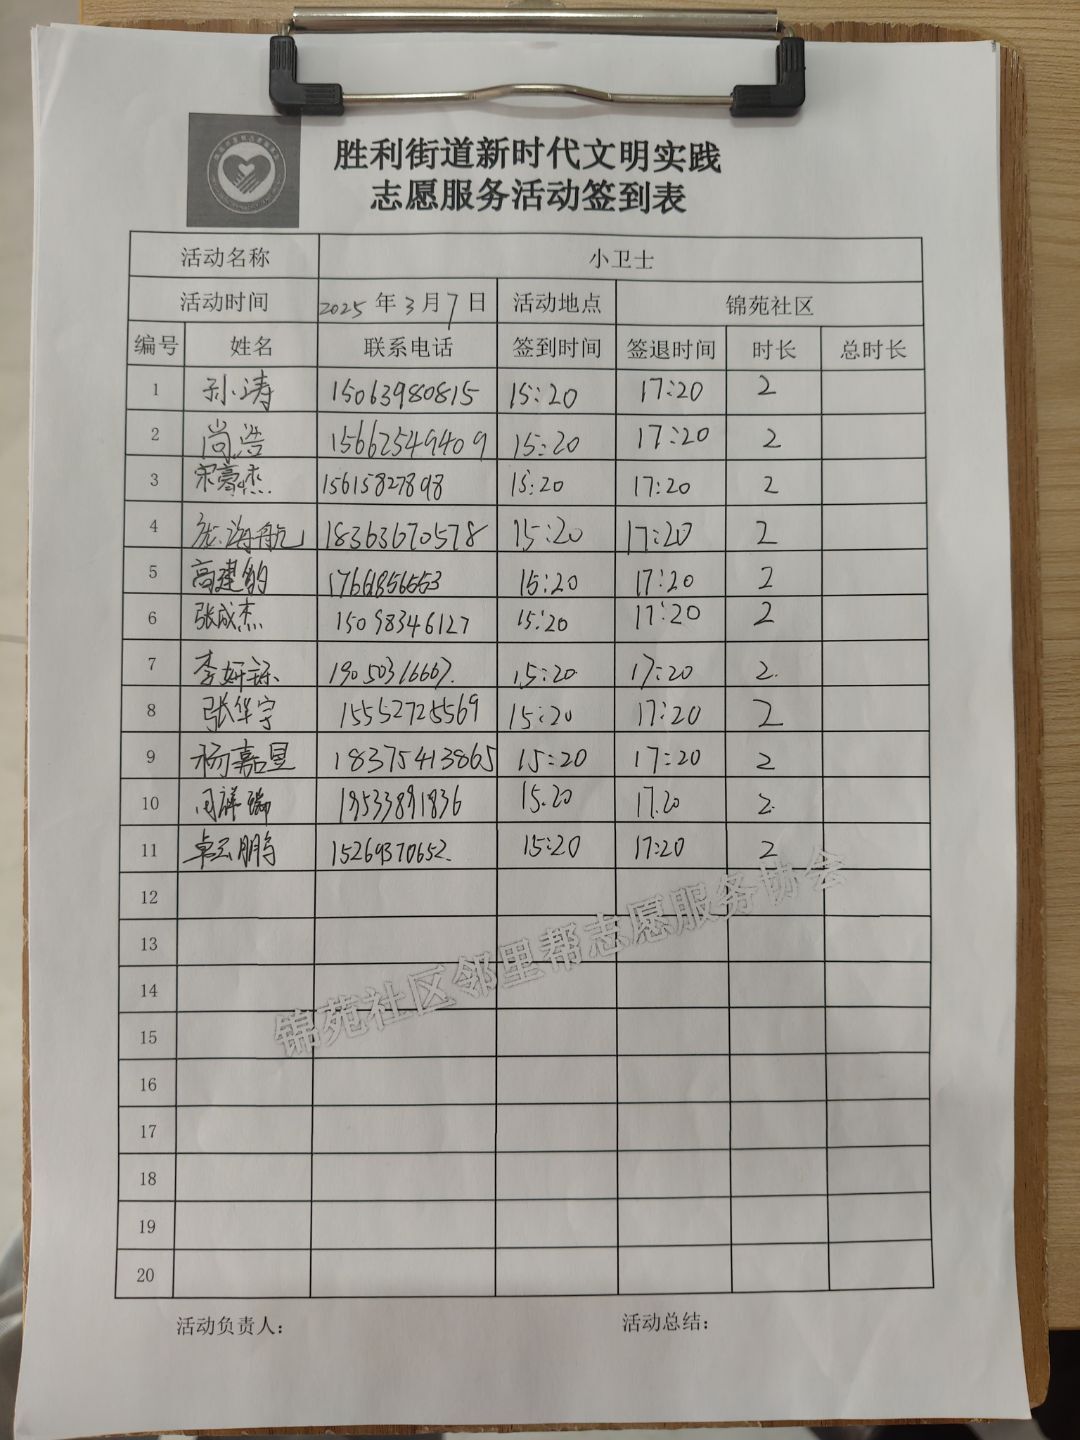 胜利街道新时代文明实践
志愿服务活动签到表
活动名称 小卫士
活动时间 2025年3月7日 活动地点 锦苑社区
编号 姓名 联系电话 签到时间 签退时间 时长 总时长
1 孙涛 15063980815 15:20 17:20 2
2 尚浩 15662549409 15:20 17:20 2
3 宋豪杰 15615827898 15:20 17:20 2
4 张海航 18363670578 15:20 17:20 2
5 高建 17661856553 15:20 17:20 2
6 张成杰 15098346127 15:20 17:20 2
7 李妍 19050316667. 15:20 17:20 2.
8 张华宇 15552725569 15:20 17:20 2
9 杨嘉昱 18375413865 15:20 17:20 2
10 周祥瑞 19533891836 15.20 17.20 2.
11 卓云鹏 15269370652. 15:20 17:20 2
12
13
14
15
16
17
18
19
20
锦苑社区邻里帮志愿服务协会
活动负责人: 活动总结: